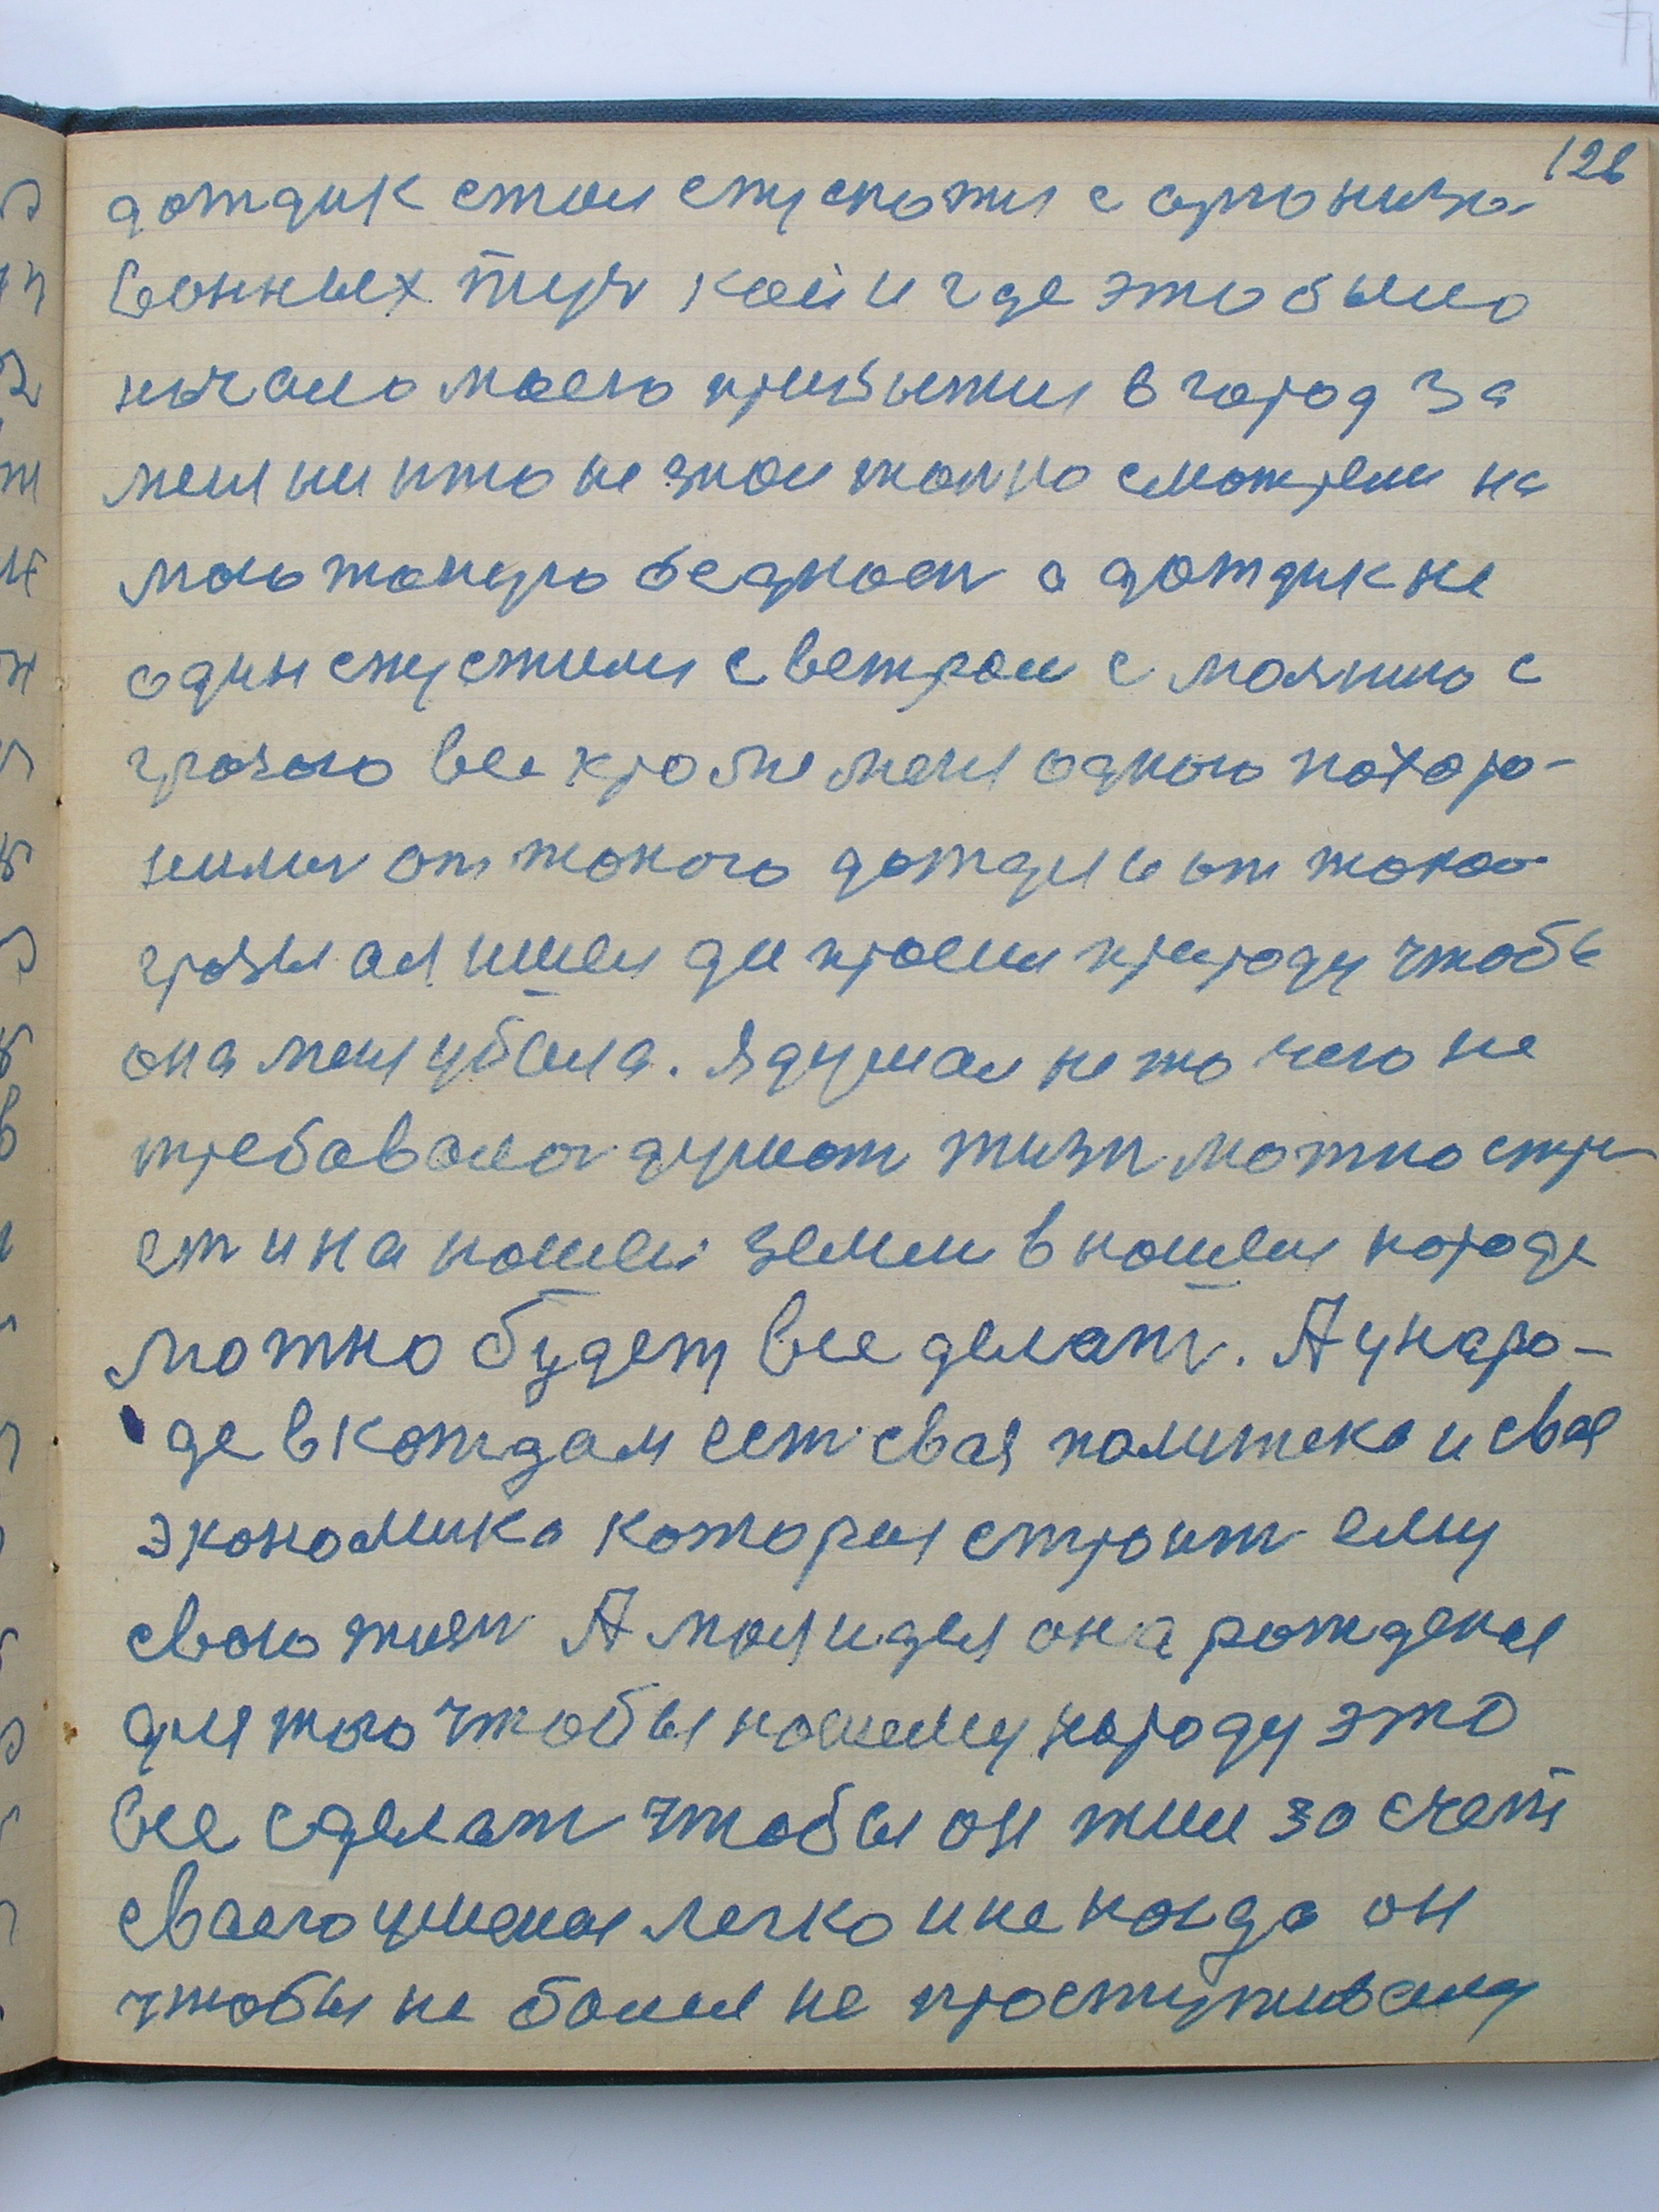 126
дождик стал спускатя с арганиза-
ванных туч кой и где это было
начало маего прибытия в город за
меня ни кто не знал толко сматрели на
мою такую беднаст а дождик не
один спустился с ветром с молнию с
грозаю все кроме меня одного похаро-
нились от такого дождя и от такой
грозы а я шел да просил природу чтобы
она меня убила. Я думал не то чего не
требавалос думат жизн можно
и на нашей земли в нашем народе
можно будет все делат. А у наро-
де в каждам ест свая палитека и свая
экономика которая строит ему
свою жизн А моя идея она рожденая
для того чтобы нашему народу это
все сделат чтобы он жил за счет
сваего умения легко и не когда он
чтобы не болел не простуживался